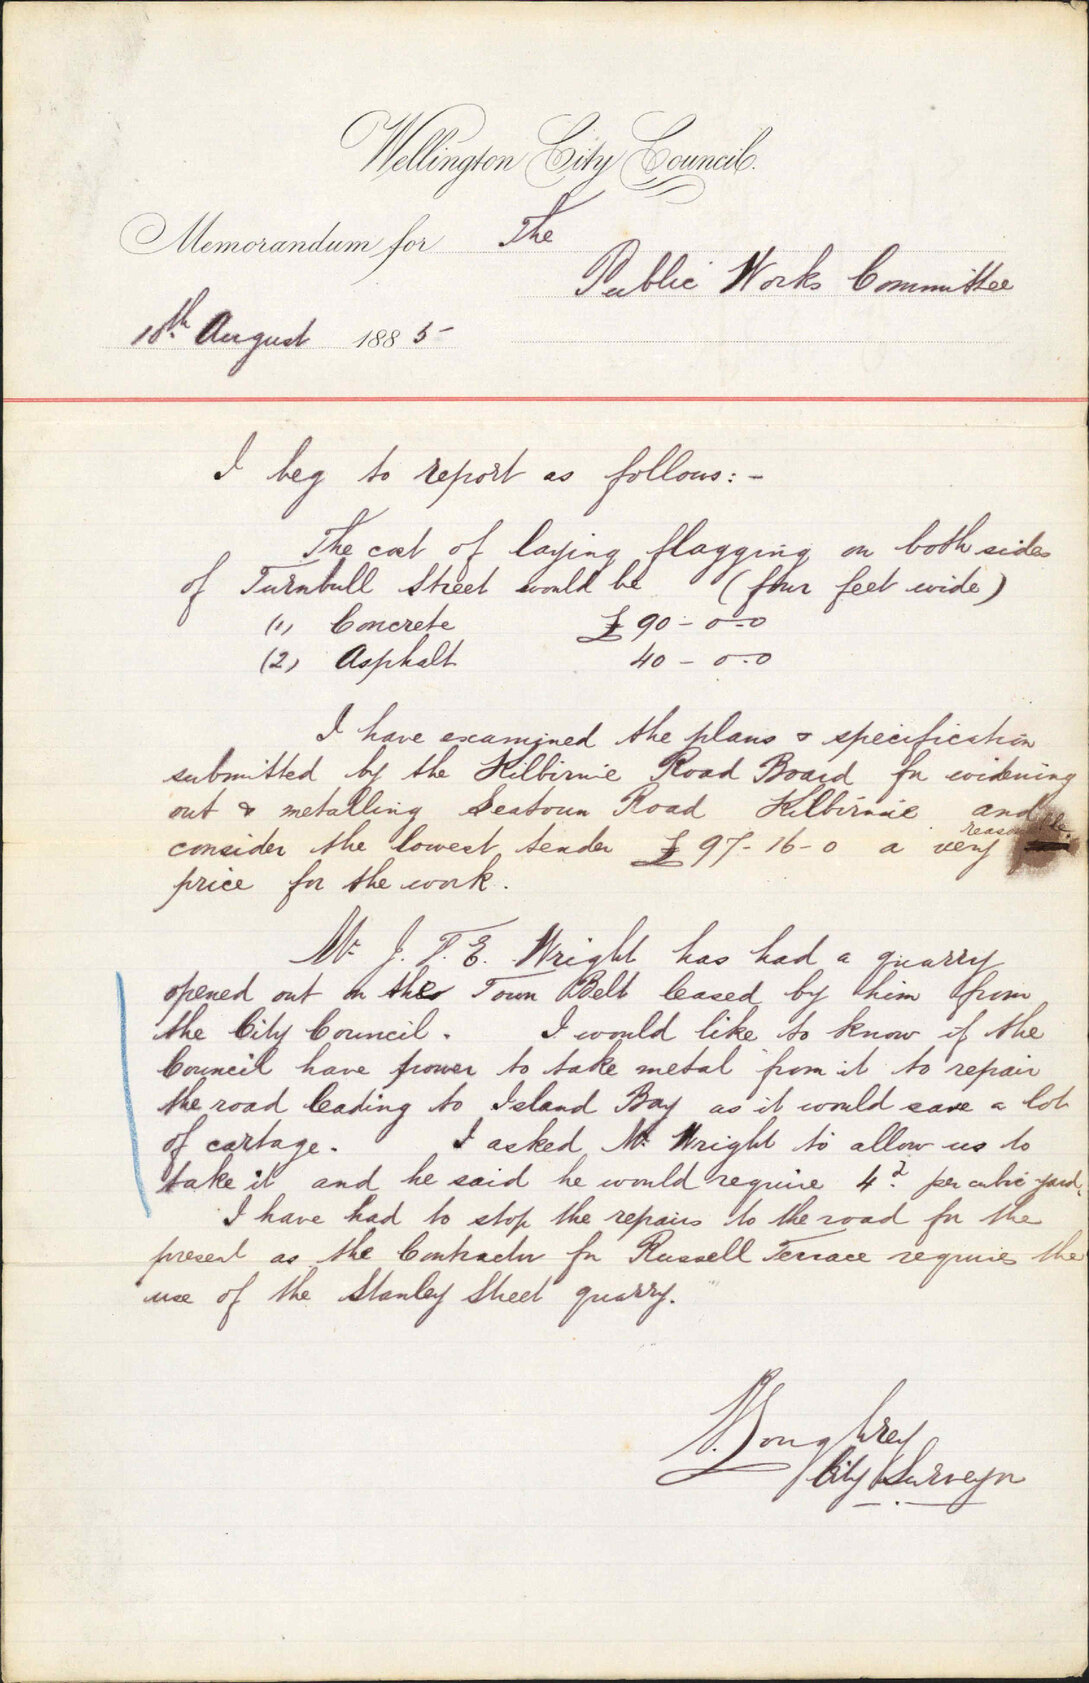 Wellington City Council.
Memorandum for The
Public Works Committee
18th August 1885
I beg to report as follows:-
The cost of laying flagging on both sides
of Turnbull Street would be (four feet wide)
(1) Concrete £90-0-0
(2) Asphalt 40-0-0
I have examined the plans & specification
submitted by the Kilbirnie Road Board for widening
out & metalling Seatoun Road Kilbirnie and
consider the lowest tender £97-16-0 a very reasonable
price for the work.
Mr J. T. E. Wright has had a quarry
opened out on the Town Belt leased by him from
the City Council. I would like to know if the
Council have power to take metal from it to repair
the road leading to Island Bay as it would save a lot
of cartage. I asked Mr Wright to allow us to
take it and he said he would require 4d per cubic yard.
I have had to stop the repairs to the road for the
present as the Contractor for Russell Terrace requires the
use of the Stanley Street quarry.
Loughrey
City Surveyor